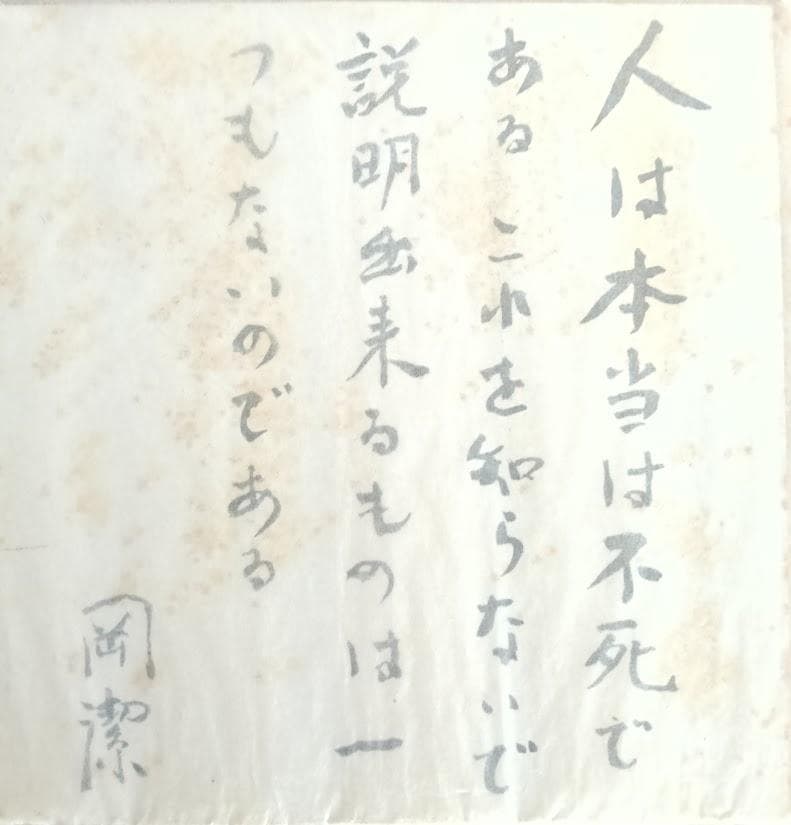 人は本当は不死で
ある これを知らないで
説明出来るものは一
つもないのである
岡潔